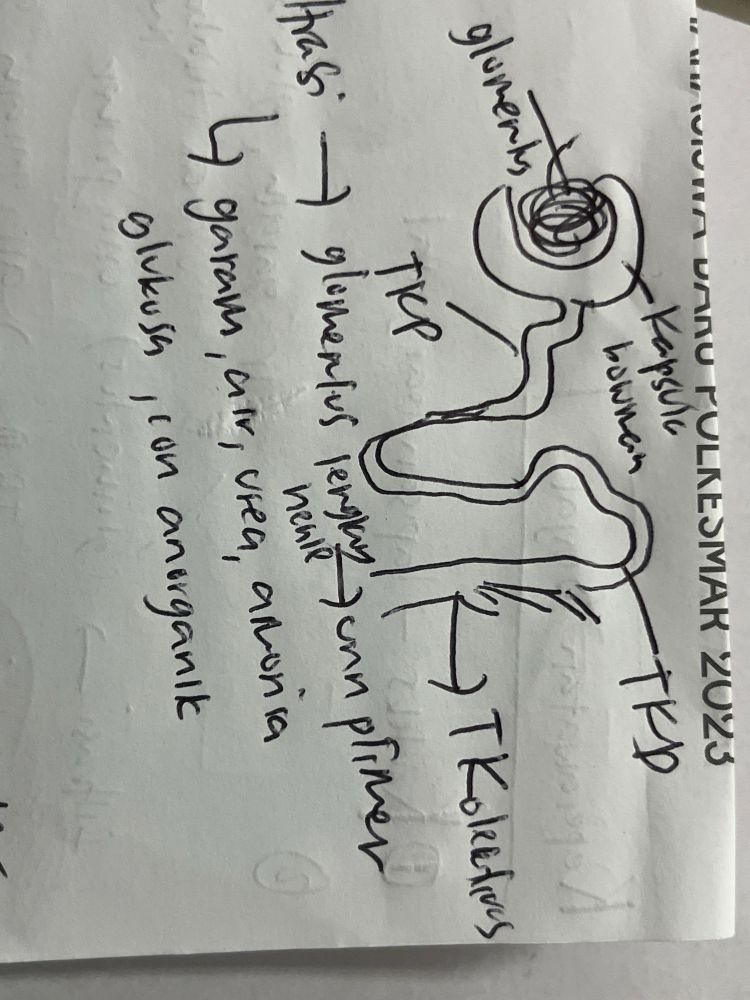 BARU POLKESMAR 2023
TKD
Kapsula
bowman
glomerulus
TKP
→ TKolektivus
ltrasi → glomerulus lengkung → urin primer
henle
↳ garam, air, urea, amonia
glukosa, ion anorganik